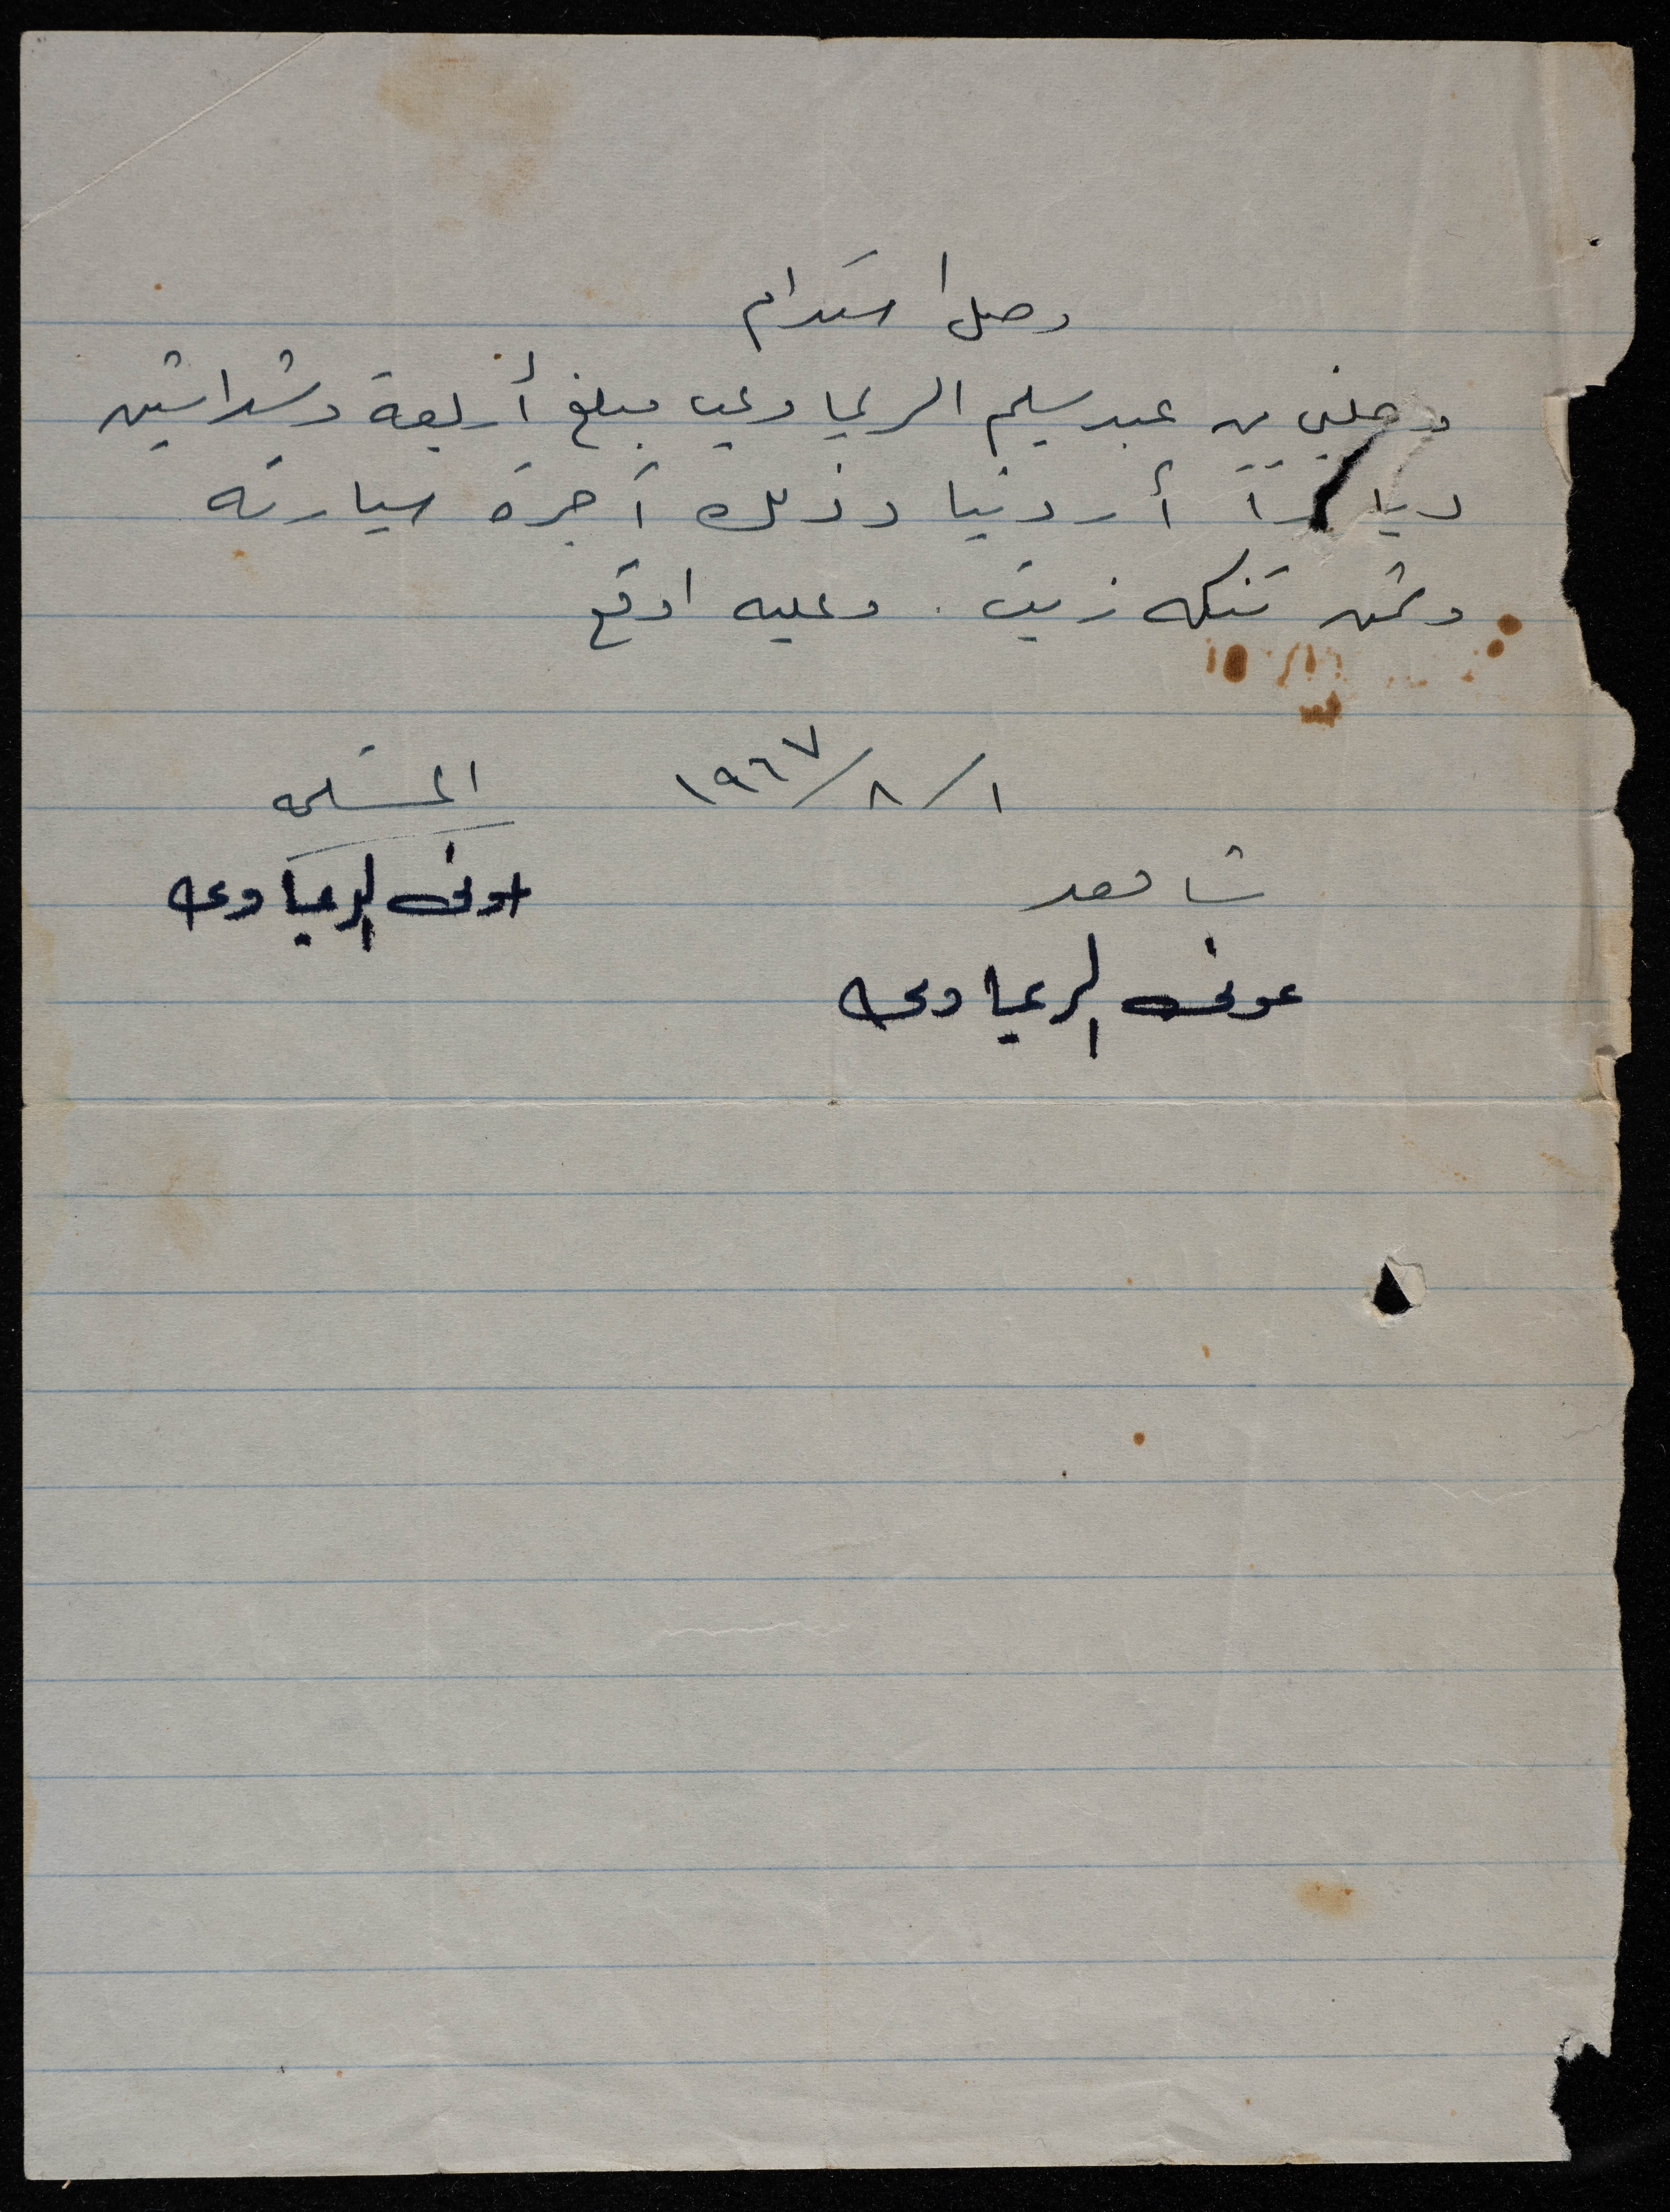 وصل استلام
وصلني من عبد سليم الريماوي مبلغ أربعة وثلاثين
دينارًا أردنيا وذلك أجرة سيارته
وثمن تنكه زيت . وعليه اوقع
١ / ٨ / ١٩٦٧ المستلم
شاهد
عوني الريماوي
عوني الريماوي